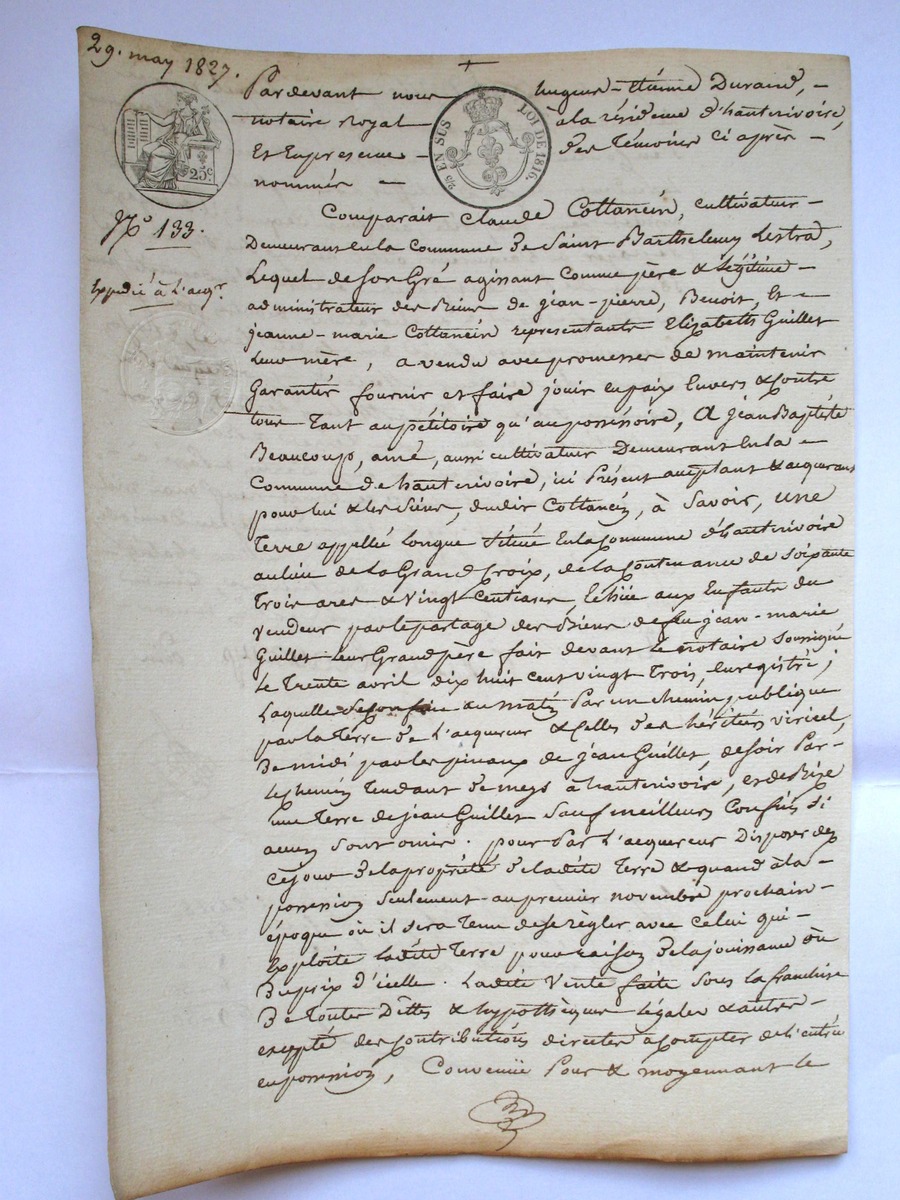 29. may 1827.
Pardevant nous hugues-étienne Durand,
notaire royal à la résidence d'hauterivoire,
Et En presence des Témoins Ci après
nommés
25 c.
2/5 EN SUS LOI DE 1816.
N.º 133.
Expedié à l'acqr.
Comparait Claude Cottancin, cultivateur
Demeurant En la Commune de Saint Barthelemy Lestrad,
Lequel de Son Gré agissant Comme père & légitime
administrateur des Biens de jean-pierre, Benoit, Et
jeanne-marie Cottancin representants Elizabeth Guillet
Leur mère, a vendu avec promesse de maintenir
Garantir fournir et faire jouir en paix Envers & Contre
tous Tant au pétitoire qu'au possessoire, A jean Baptiste
Beaucoup, ainé, aussi cultivateur Demeurant En la
Commune de hauterivoire, ici Présent acceptant & acquerant
pour lui & les Siens, dudit Cottancin, à Savoir, une
Terre appellée Longue Située En la Commune d'hauterivoire
au lieu de La Grand Croix, de la Contenance de Soixante
Trois ares & Vingt Centiares, Echue aux Enfants du
Vendeur par le partage des Biens de feu jean-marie
Guillet leur Grand père fait devant le notaire Soussigné
Le Trente avril dix huit cent vingt Trois, Enregistré;
Laquelle Se Confine au matin Par un chemin publique
par la Terre de l'acquereur & Celles des héritiers viricel,
De midi par les pinaux de jean Guillet, de Soir Par
Le chemin Tendant de meys à hauterivoire, et de Bize
une Terre de jean Guillet Sauf meilleurs Confins Si
aucun Sont omis. pour Par l'acquereur Disposer dez
Cejour de la propriété de ladite Terre & quand à la
possession Seulement au premier novembre prochain
époque où il Sera Tenu de se règler avec Celui qui
Exploite Ladite Terre pour raison de la jouissance où
Du prix d'icelle. Ladite Vente faite Sous la franchise
De Toutes Dettes & hypothèques Légales & autres
excepté des Contributions directes à Compter de l'entrée
en possession, Convenüe Pour & moyennant le